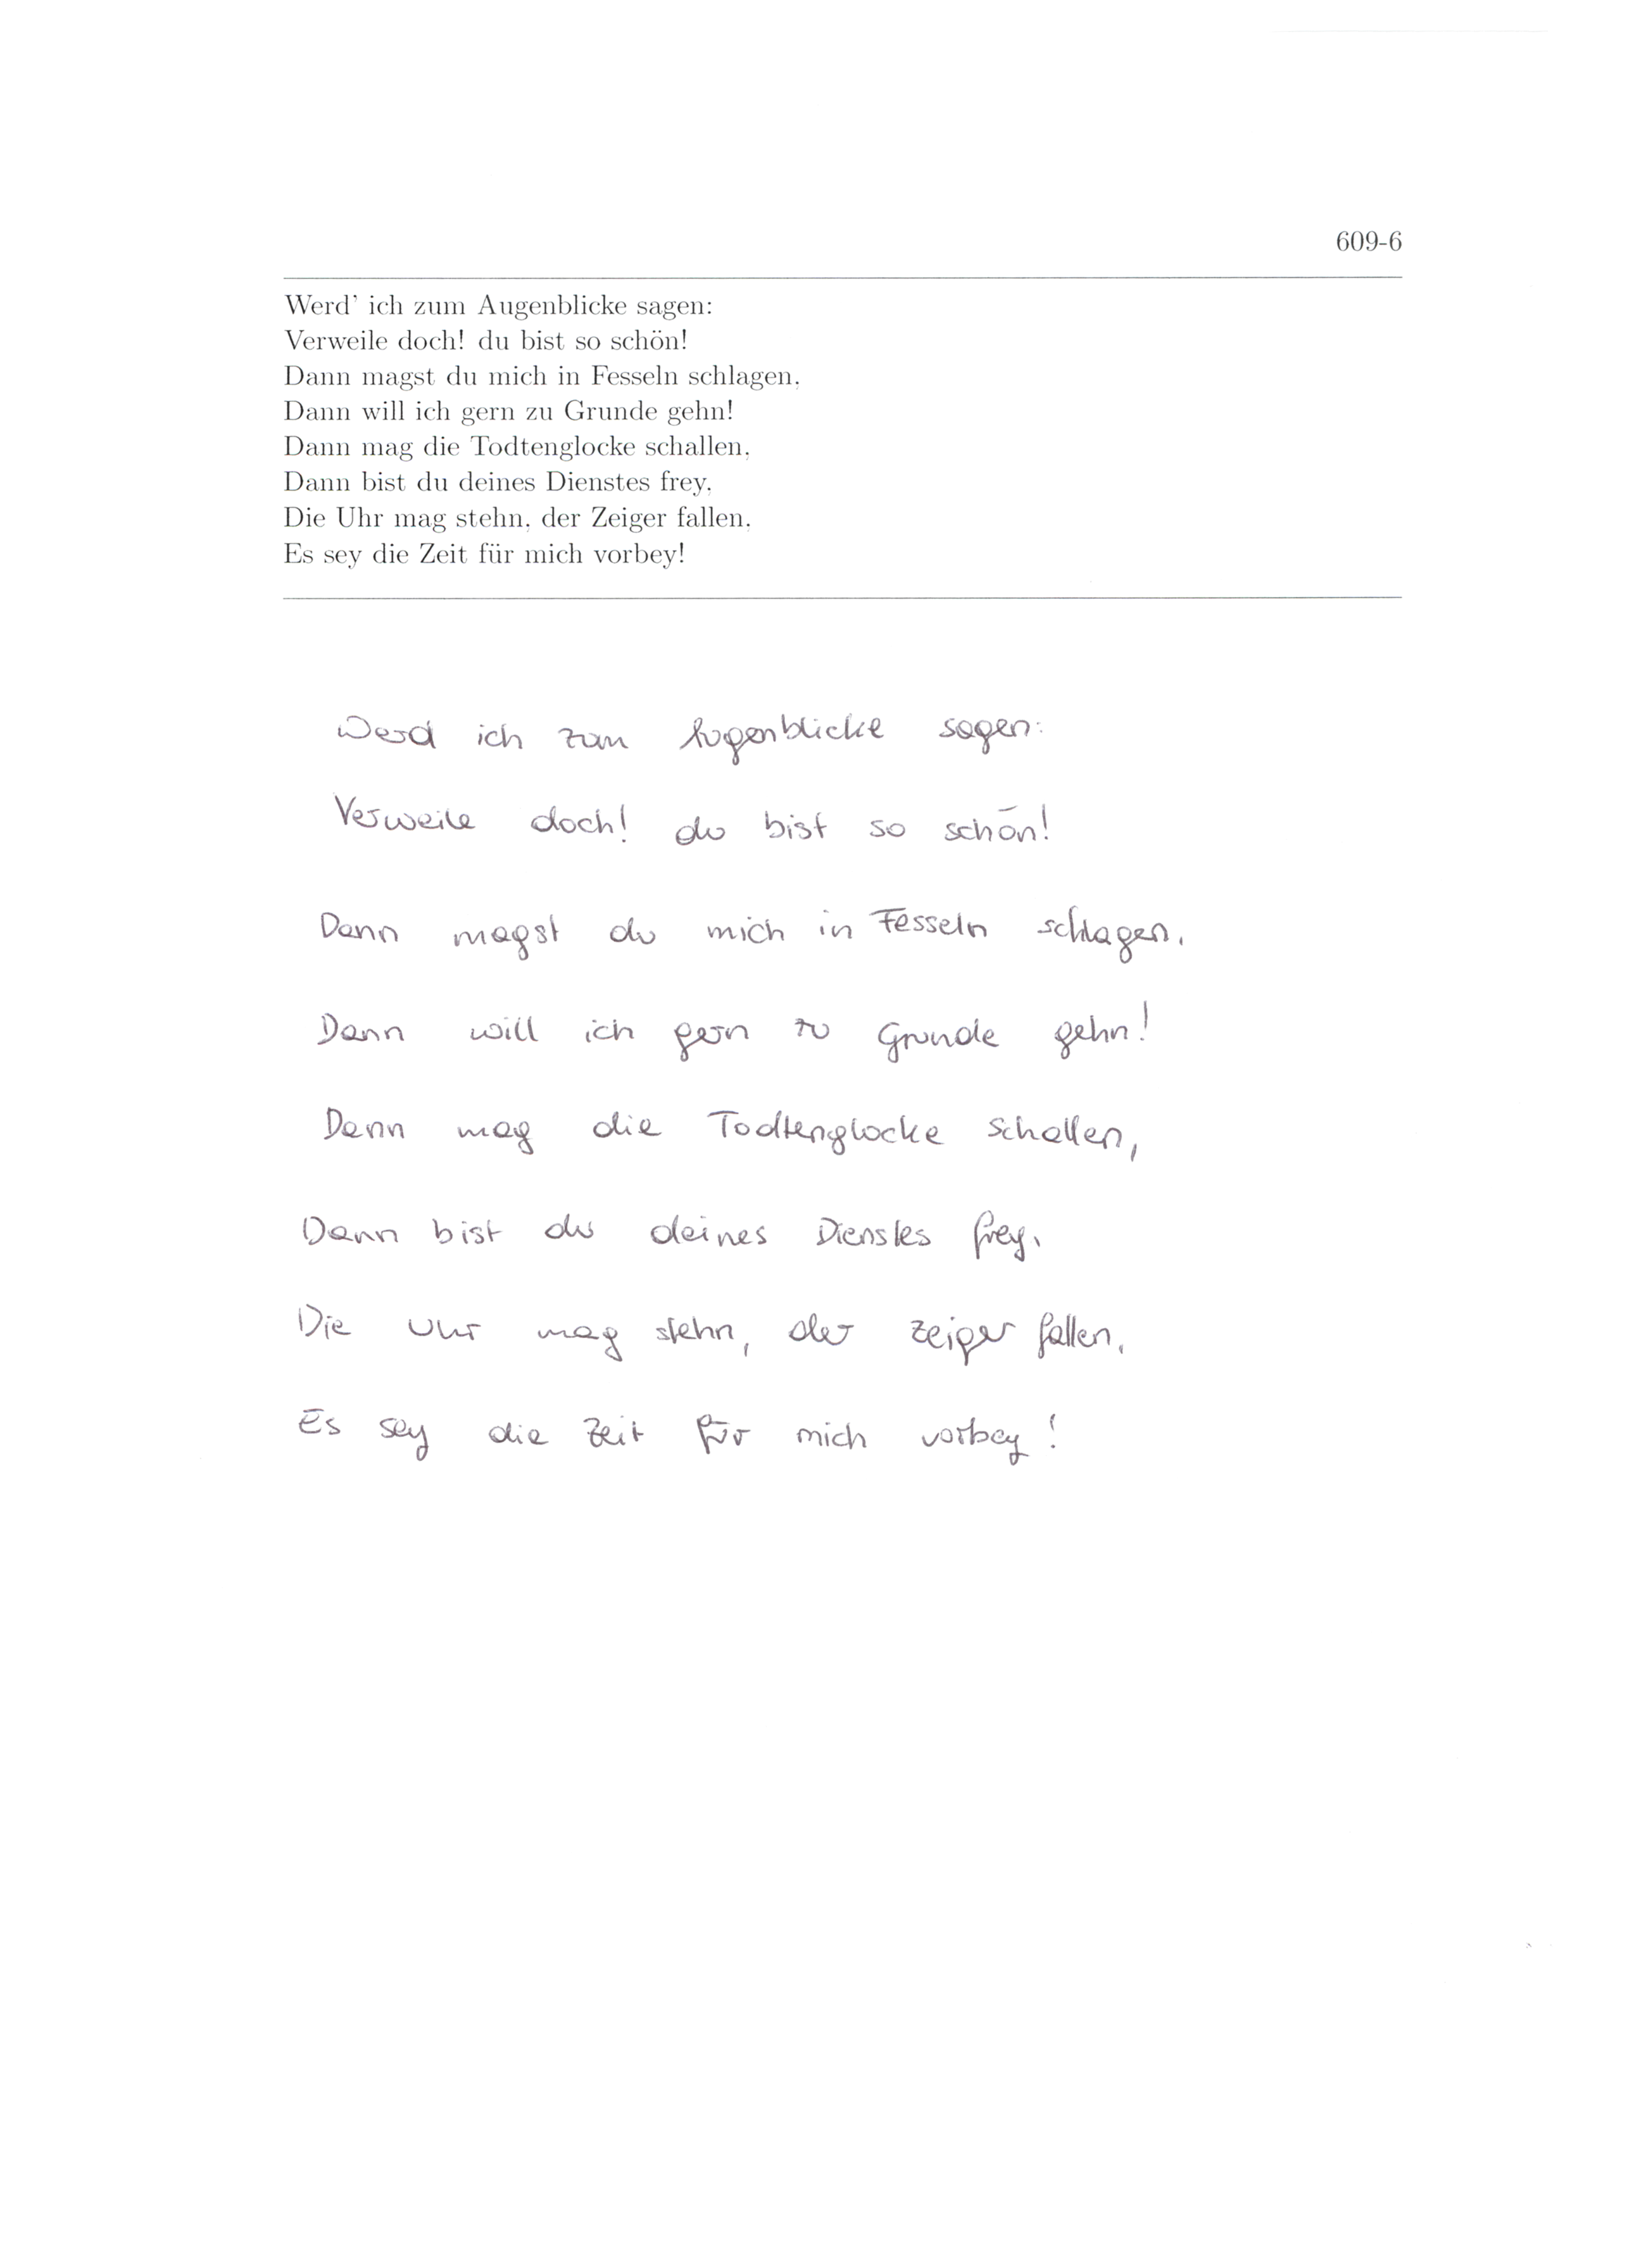 609-6
Werd' ich zum Augenblicke sagen:
Verweile doch! du bist so schön!
Dann magst du mich in Fesseln schlagen,
Dann will ich gern zu Grunde gehn!
Dann mag die Todtenglocke schallen,
Dann bist du deines Dienstes frey,
Die Uhr mag stehn, der Zeiger fallen,
Es sey die Zeit für mich vorbey!
Werd ich zum Augenblicke sagen:
Verweile doch! du bist so schön!
Dann magst du mich in Fesseln schlagen,
Dann will ich gern zu Grunde gehn!
Dann mag die Todtenglocke schallen,
Dann bist du deines Dienstes frey,
Die Uhr mag stehn, der Zeiger fallen,
Es sey die Zeit für mich vorbey!